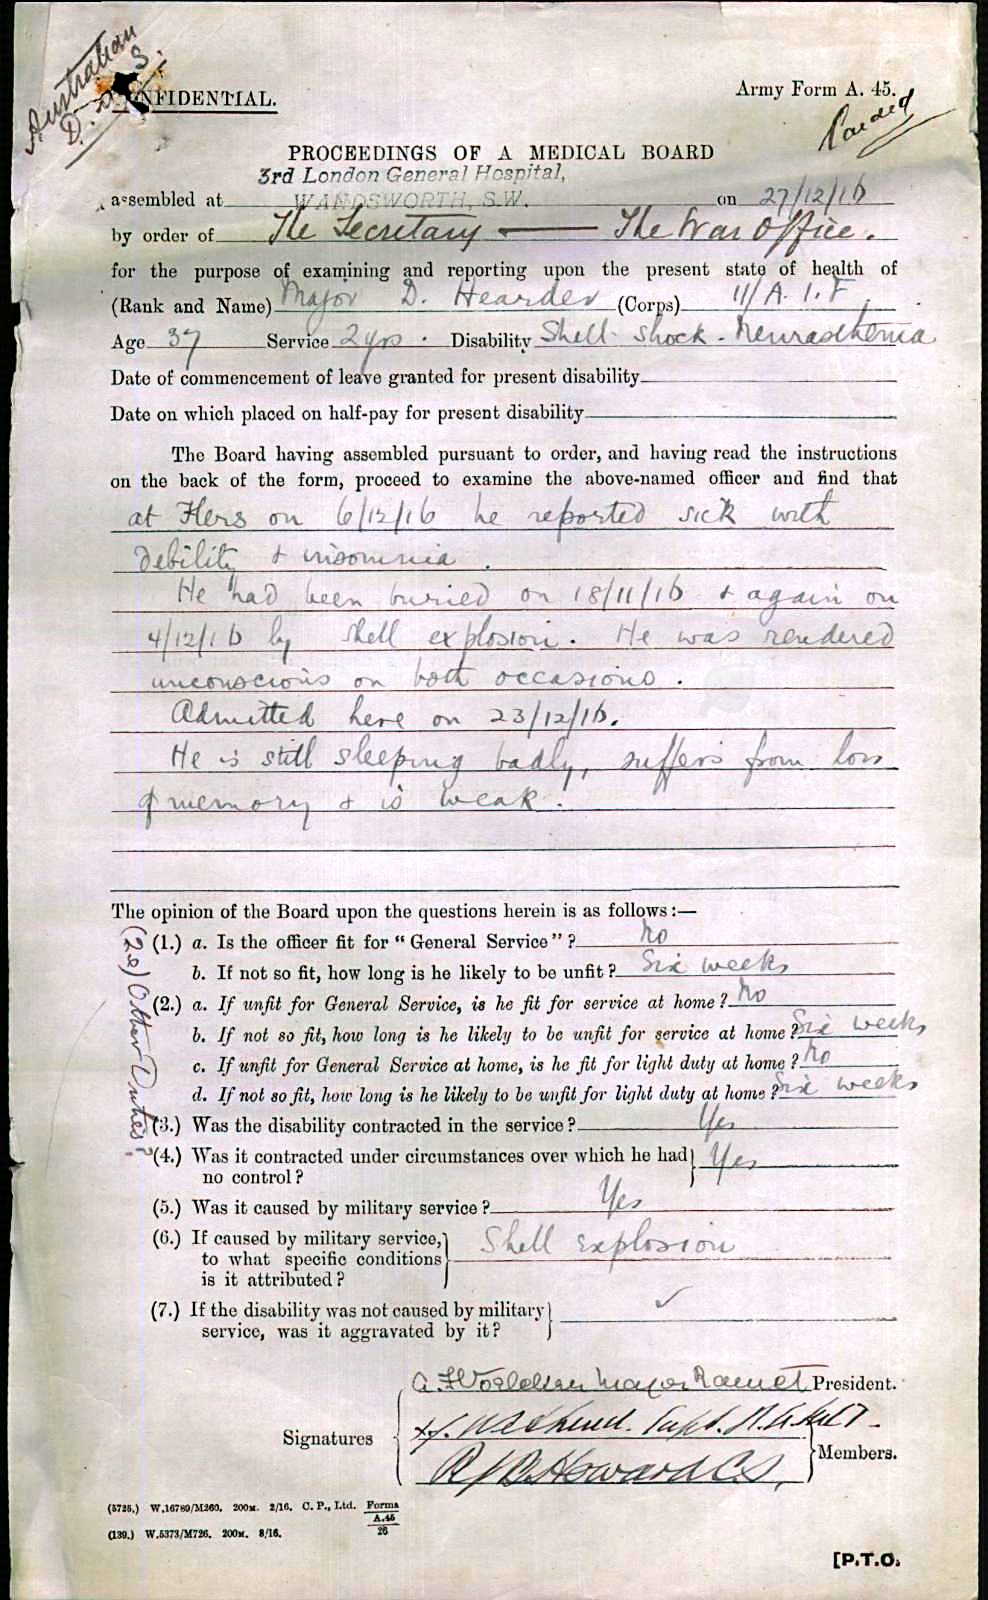 Australian
D.
CONFIDENTIAL.
Army Form A. 45.
Carded
PROCEEDINGS OF A MEDICAL BOARD
3rd London General Hospital,
assembled at WANDSWORTH, S.W. on 27/12/16
by order of The Secretary — The War Office.
for the purpose of examining and reporting upon the present state of health of
(Rank and Name) Major D. Hearder (Corps) 11/A.I.F.
Age 37 Service 2 yrs. Disability Shell Shock - Neurasthenia
Date of commencement of leave granted for present disability
Date on which placed on half-pay for present disability
The Board having assembled pursuant to order, and having read the instructions
on the back of the form, proceed to examine the above-named officer and find that
at Flers on 6/12/16 he reported sick with
debility & insomnia.
He had been buried on 18/11/16 & again on
4/12/16 by shell explosion. He was rendered
unconscious on both occasions.
Admitted here on 23/12/16.
He is still sleeping badly, suffers from loss
of memory & is weak.
The opinion of the Board upon the questions herein is as follows:—
(1.) a. Is the officer fit for "General Service"? No
b. If not so fit, how long is he likely to be unfit? Six weeks
(2.) a. If unfit for General Service, is he fit for service at home? No
b. If not so fit, how long is he likely to be unfit for service at home? Six weeks
c. If unfit for General Service at home, is he fit for light duty at home? No
d. If not so fit, how long is he likely to be unfit for light duty at home? Six weeks
(2e) Other Duties?
(3.) Was the disability contracted in the service? Yes
(4.) Was it contracted under circumstances over which he had Yes
no control?
(5.) Was it caused by military service? Yes
(6.) If caused by military service, Shell explosion
to what specific conditions
is it attributed?
(7.) If the disability was not caused by military ✓
service, was it aggravated by it?
Major RAMCT President.
Signatures Capt.
Members.
R. Howard C.S.
(5725.) W.16789/M260. 200M. 2/16. C. P., Ltd. Forms
A.45
26
(139.) W.5373/M726. 200M. 8/16.
[P.T.O.